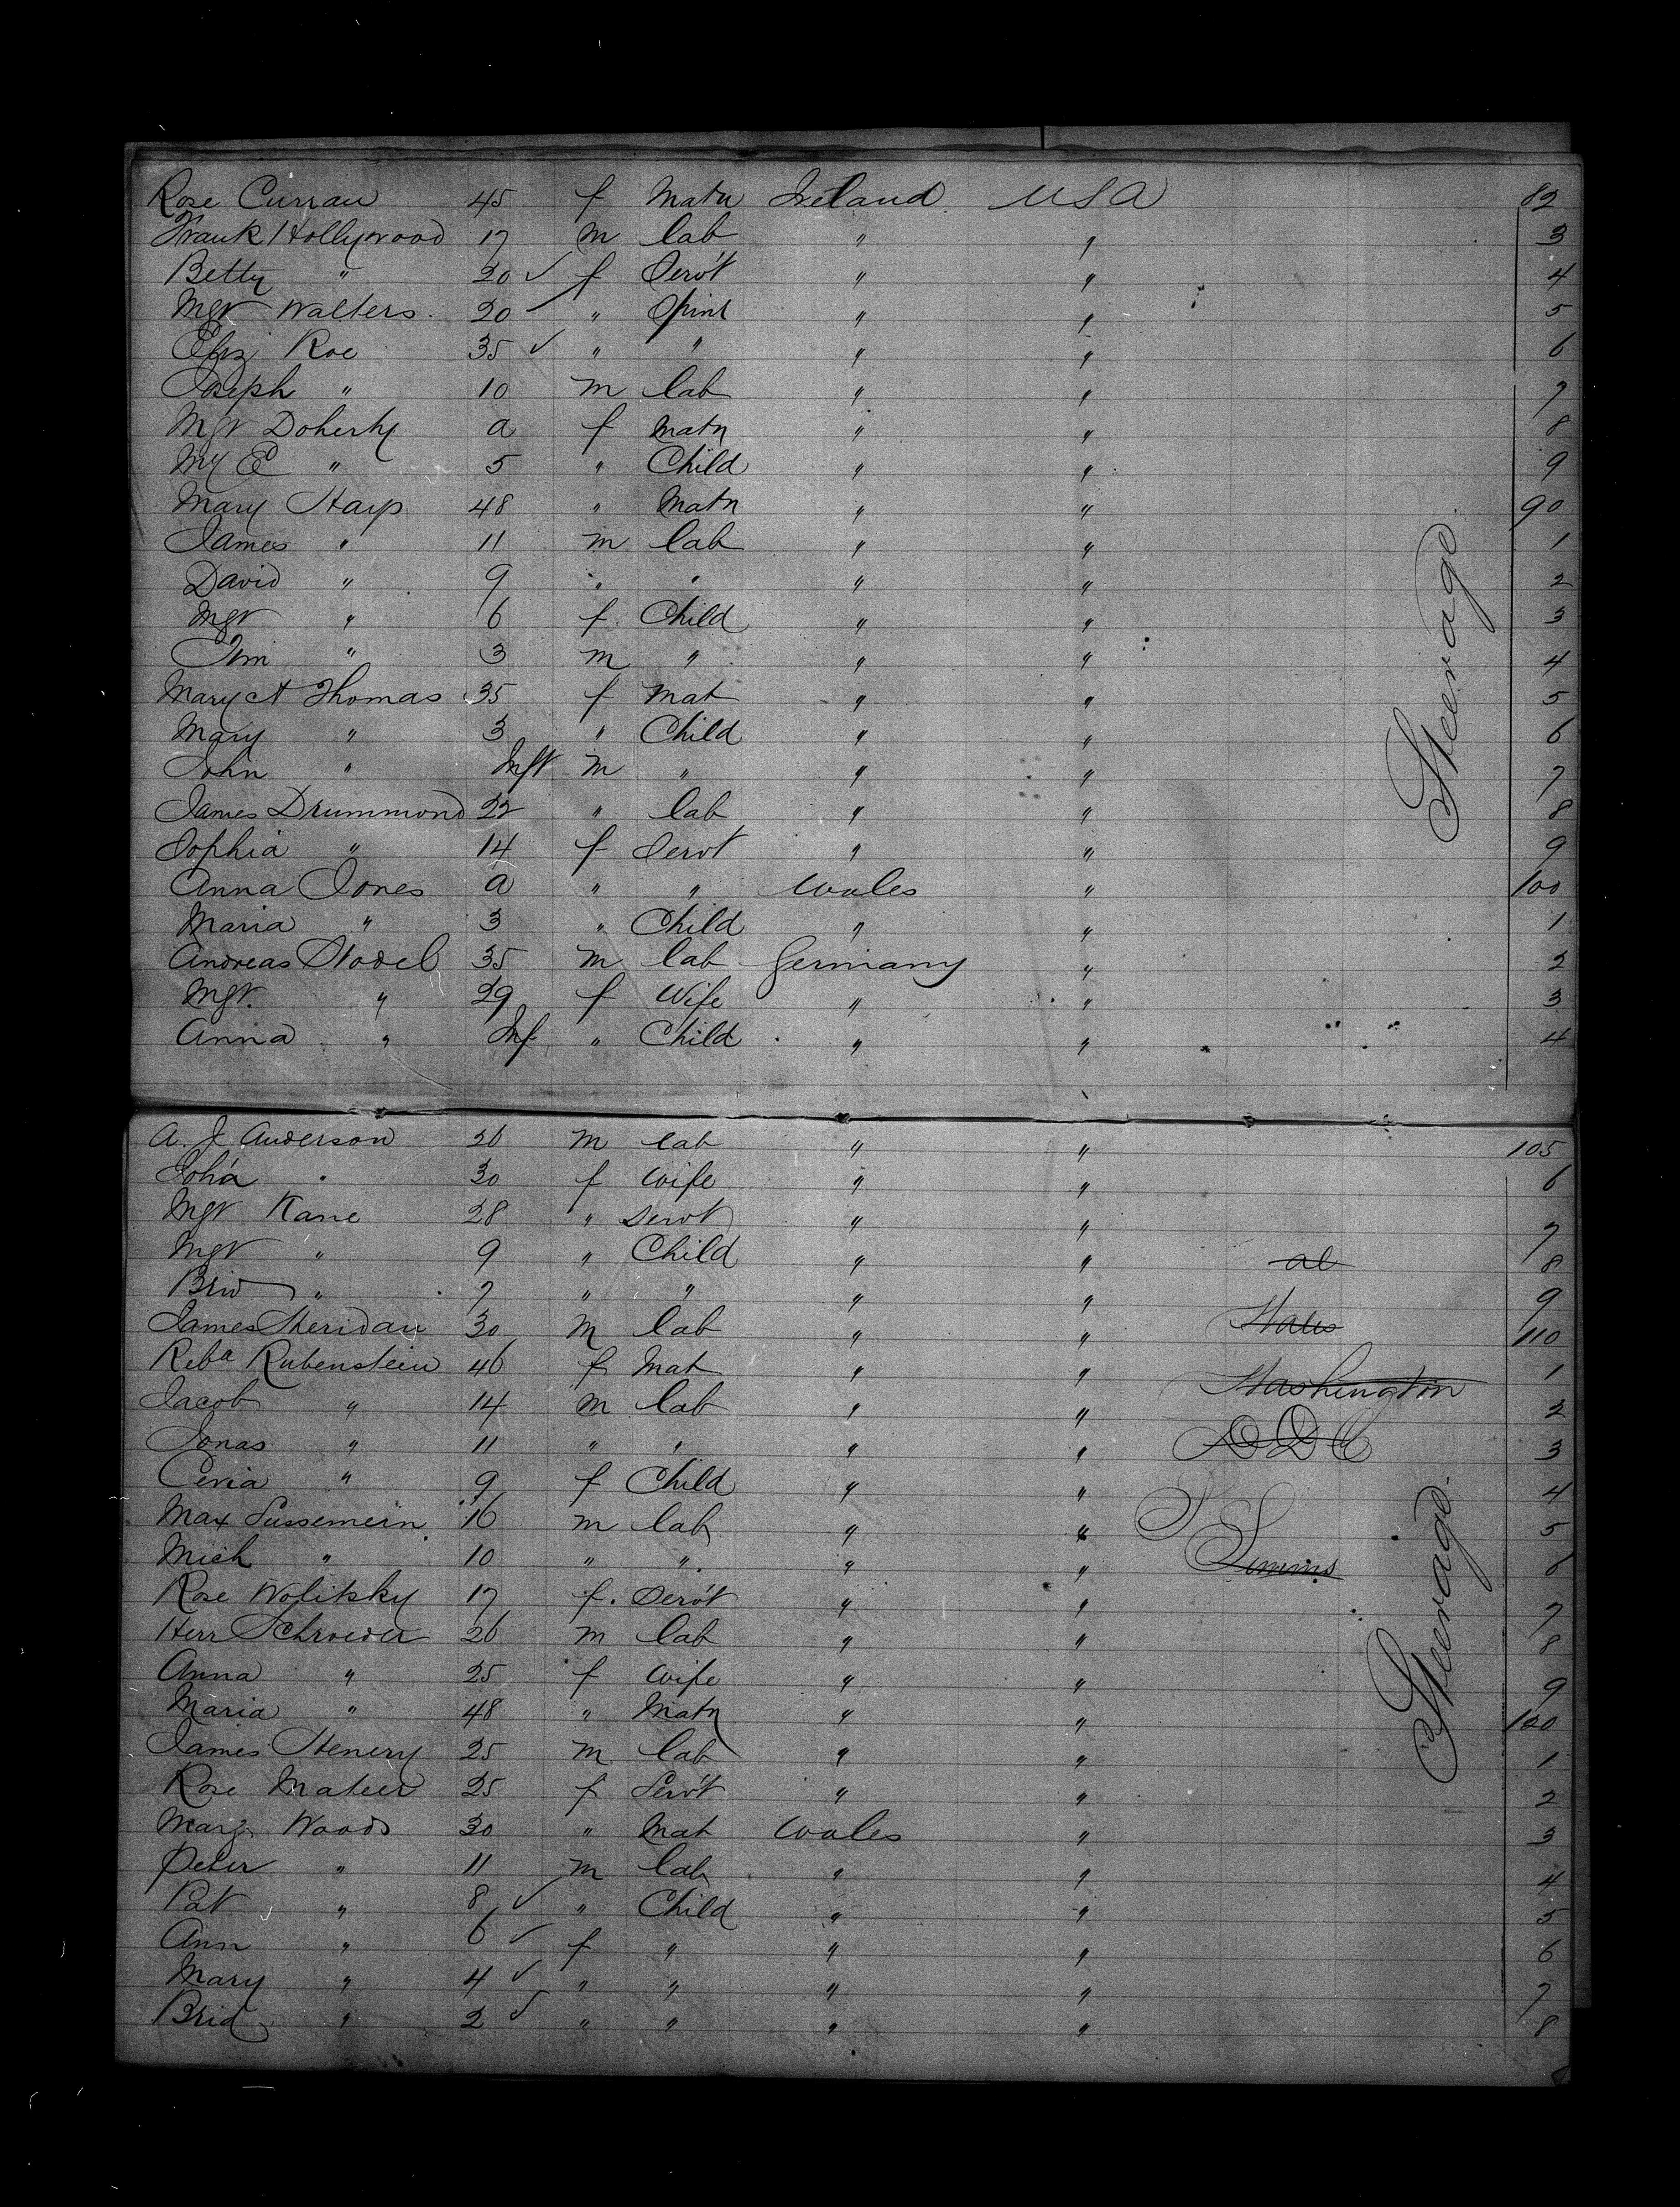 Rose Curran 45 f Matn Ireland USA 82
Frank Hollywood 17 m lab " " 3
Betty " 20 ✓ f Servt " " 4
Mgt Walters 20 " Spins " " 5
Eliz Roe 35 ✓ " " " " 6
Joseph " 10 m lab " " 7
Mgt Doherty a f Matn " " 8
My E " 5 " Child " " 9
Mary Harp 48 " Matn " " 90
James " 11 m lab " " 1
David " 9 " " " " 2
Mgt " 6 f Child " " 3
Tim " 3 m " " " 4
Mary A Thomas 35 f Mat " " 5
Mary " 3 " Child " " 6
John " Inft m " " " 7
James Drummond 22 " lab " " 8
Sophia " 14 f Servt " " 9
Anna Jones a " " Wales " 100
Maria " 3 " Child " " 1
Andreas 35 m lab Germany " 2
Mgt. " 29 f Wife " " 3
Anna " Inf " Child " " 4
Steerage
A. J. Anderson 26 m lab " " 105
Joh'a " 30 f Wife " " 6
Mgt Kane 28 " Servt " " 7
Mgt " 9 " Child " " al 8
Brid " 7 " " " " 9
James Sheridan 30 m lab " " 110
Reba Rubenstein 46 f Mat " " Washington 1
Jacob " 14 m lab " " 2
Jonas " 11 " " " " 3
Ceria " 9 f Child " " 4
Max Sussemein 16 m lab " " 5
Mich " 10 " " " " Simms 6
Rose Wolitsky 17 f. Servt " " 7
Herr Schroeder 26 m lab " " 8
Anna " 25 f Wife " " 9
Maria " 48 " Matn " " 120
James Henery 25 m lab " " 1
Rose Mateer 25 f Servt " " 2
Marg Woods 30 " Mat Wales " 3
Peter " 11 m lab " " 4
Pat " 8 ✓ " Child " " 5
Ann " 6 ✓ f " " " 6
Mary " 4 ✓ " " " " 7
Brid " 2 ✓ " " " " 8
Steerage